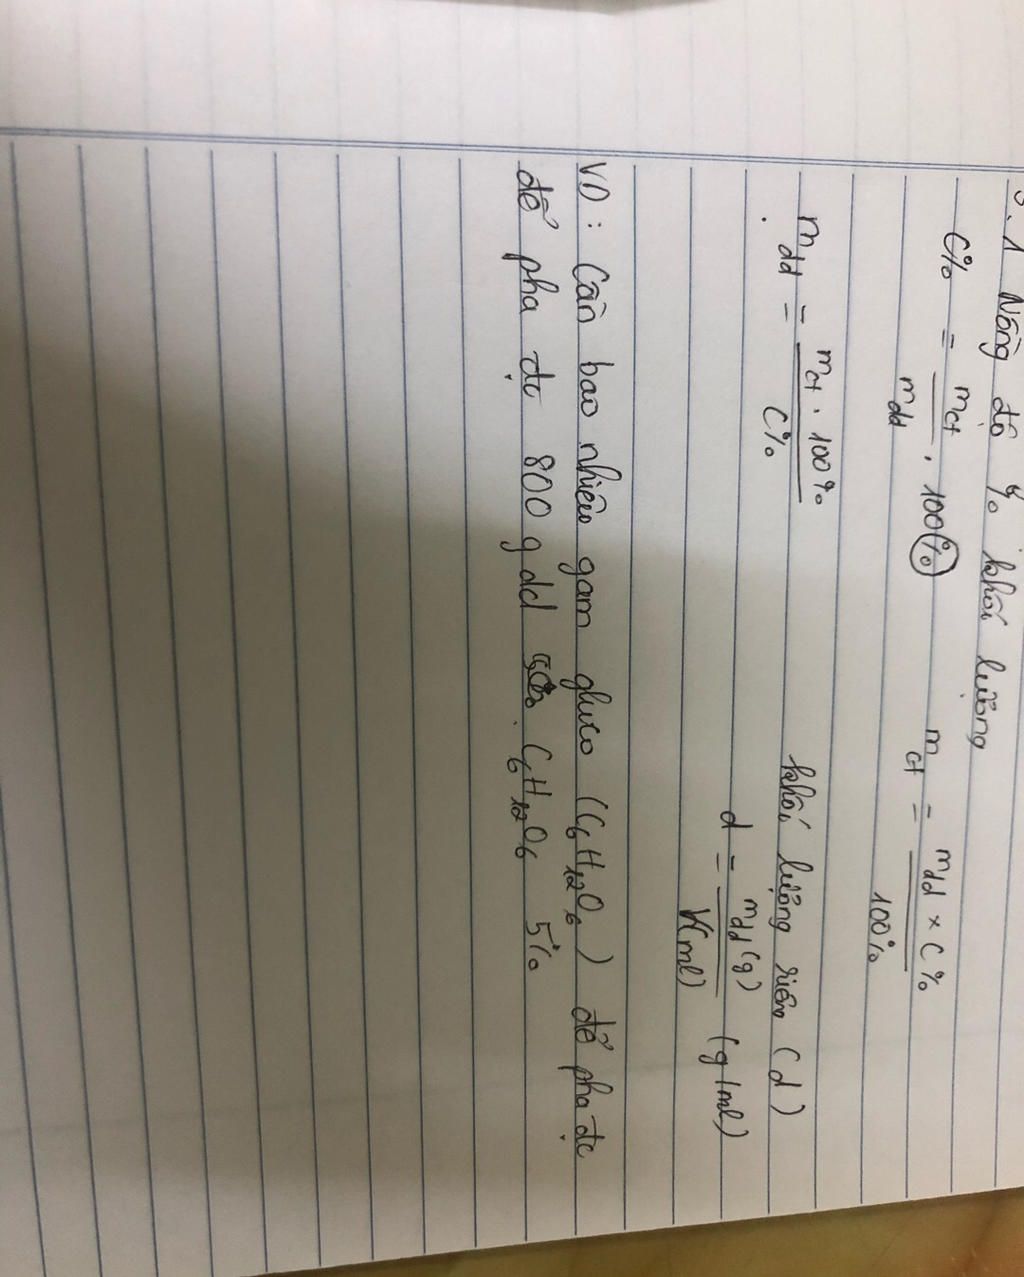 .1 Nồng độ % khối lượng
C% = mct / mdd . 100% mct = mdd × C% / 100%
mdd = mct . 100% / C%
khối lượng riên (d)
d = mdd (g) / V(ml) (g/ml)
VD : Cần bao nhiêu gam gluco (C6H12O6) để pha đc
để pha đc 800 g dd C6H12O6 5%